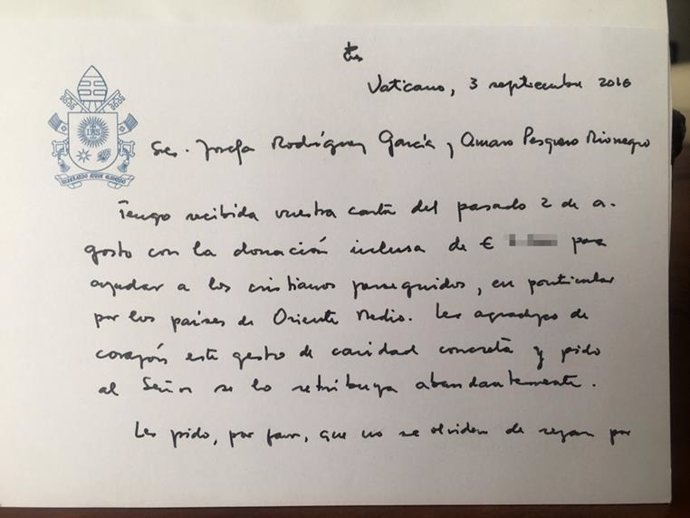 Vaticano, 3 septiembre 2016
MISERANDO ATQUE ELIGENDO
IHS
Sres. Josefa Rodríguez García y Amaro Pesquero Rionegro
Tengo recibida vuestra carta del pasado 2 de a-
gosto con la donación inclusa de € para
ayudar a los cristianos perseguidos, en particular
por los países de Oriente Medio. Les agradezco de
corazón este gesto de caridad concreta y pido
al Señor se lo retribuya abundantemente.
Les pido, por favor, que no se olviden de rezar por